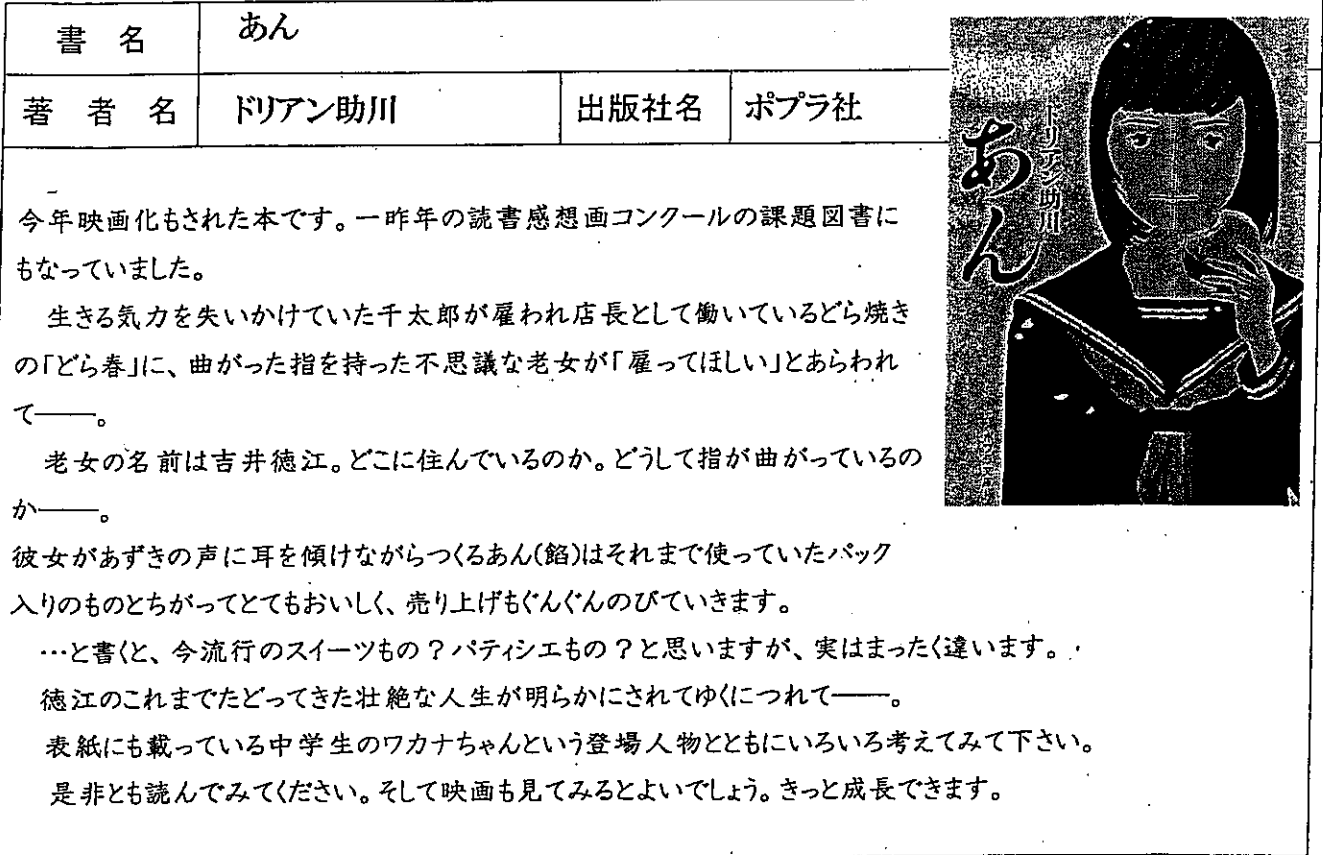 書名 あん
著者名 ドリアン助川 出版社名 ポプラ社
ドリアン助川
あん
今年映画化もされた本です。一昨年の読書感想画コンクールの課題図書に
もなっていました。
生きる気力を失いかけていた千太郎が雇われ店長として働いているどら焼き
の「どら春」に、曲がった指を持った不思議な老女が「雇ってほしい」とあらわれ
て――。
老女の名前は吉井徳江。どこに住んでいるのか。どうして指が曲がっているの
か――。
彼女があずきの声に耳を傾けながらつくるあん(餡)はそれまで使っていたパック
入りのものとちがってとてもおいしく、売り上げもぐんぐんのびていきます。
…と書くと、今流行のスイーツもの？パティシエもの？と思いますが、実はまったく違います。
徳江のこれまでたどってきた壮絶な人生が明らかにされてゆくにつれて――。
表紙にも載っている中学生のワカナちゃんという登場人物とともにいろいろ考えてみて下さい。
是非とも読んでみてください。そして映画も見てみるとよいでしょう。きっと成長できます。